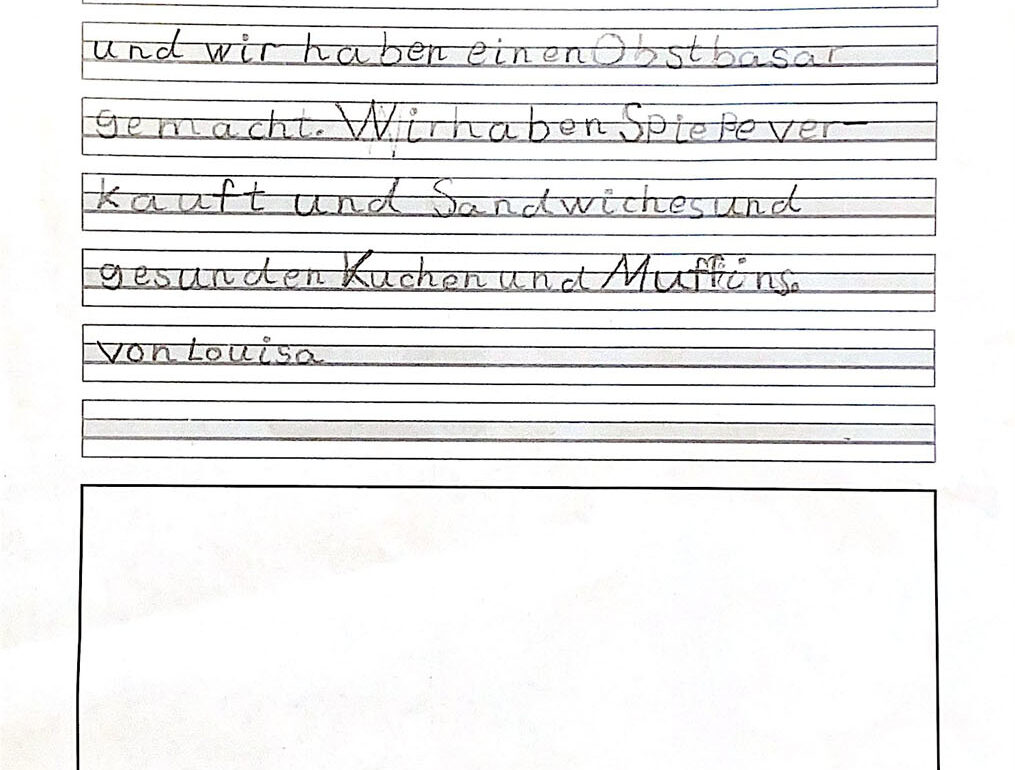 und wir haben einen Obstbasar
gemacht. Wir haben Spieße ver-
kauft und Sandwiches und
gesunden Kuchen und Muffins.
von Louisa